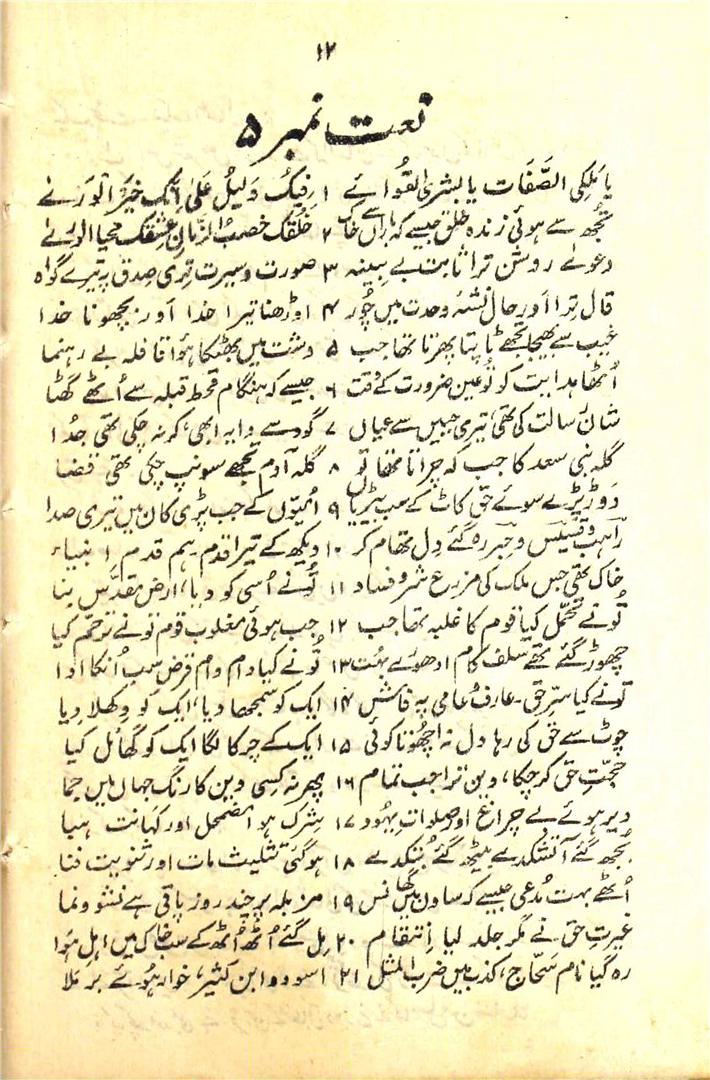 ۱۲
نعت نمبر ۵
یا ملکی الصفات یا بشری القوائے ۱ فیک دلیل علیٰ انک خیر الورےٰ
تجھ سے ہوئی زندہ خلق جیسے کہ باراں سے خاک ۲ خلقک خصب الزمان عشقک محیا الورےٰ
دعوےٰ روشن ترا ثابت بے بینہ ۳ صورت و سیرت تری صدق پہ تیرے گواہ
قال ترا اور حال نشۂ وحدت میں چُور ۴ اوڑھنا تیرا خدا اور بچھونا خدا
غیب سے بھیجا تجھے ٹاپتا پھرتا تھا جب ۵ دشت میں بھٹکا ہوا قافلہ بے رہنما
اُٹھا ہدایت کو تو عین ضرورت کے وقت ۶ جیسے کہ ہنگام قحط قبلہ سے اُٹھے گھٹا
شانِ رسالت کی تھی تیری جبیں سے عیاں ۷ گود سے دایہ ابھی، کر نہ چکی تھی جدا
گلہ بنی سعد کا جب کہ چراتا تھا تو ۸ گلہ آدم تجھے سونپ چکی تھی قضا
دوڑ پڑے سوئے حق کاٹ کے سب بیڑیاں ۹ اُمّیوں کے جب پڑی کان میں تیری صدا
راہب و قسیس و حبر رہ گئے دل تھام کر ۱۰ دیکھ کے تیرا قدم ہم قدم انبیاء
خاک تھی جس ملک کی مزرع شر و فساد ۱۱ تُو نے اُسی کو دیا، ارض مقدس بنا
تُو نے تحمل کیا قوم کا غلبہ تھا جب ۱۲ جب ہوئی مغلوب قوم تو نے ترحم کیا
چھوڑ گئے تھے سلف کام ادھورے بہت ۱۳ تُو نے کیا دام دام قرض سب اُنکا ادا
تونے کیا سِرّ حق۔ عارف و عامی پہ فاش ۱۴ ایک کو سمجھا دیا، ایک کو دکھلا دیا
چوٹ سے حق کی رہا دل نہ اچھوتا کوئی ۱۵ ایک کے چرکا لگا ایک کو گھائل کیا
حجتِ حق کر چکا، دین ترا جب تمام ۱۶ پھر نہ کسی دین کا رنگ جہاں میں جما
دیر ہوئے بے چراغ اور صلوات یہود ۱۷ شرک ہوا مضمحل اور کہانت ہبا
بُجھ گئے آتشکدے بیٹھ گئے بُتکدے ۱۸ ہو گئی تثلیث مات اور ثنویت فنا
اُٹھے بہت مُدعی جیسے کہ ساون میں گھانس ۱۹ مزبلہ پر چند روز پاتی ہے نشو و نما
غیرتِ حق نے مگر جلد لیا اِنتقام ۲۰ مِل گئے اُٹھ اُٹھ کے سب خاک میں اہل ہوا
رہ گیا نام سَحّاج، کذب میں ضرب المثل ۲۱ اسود و ابن کثیر، خوار ہوئے بر ملا